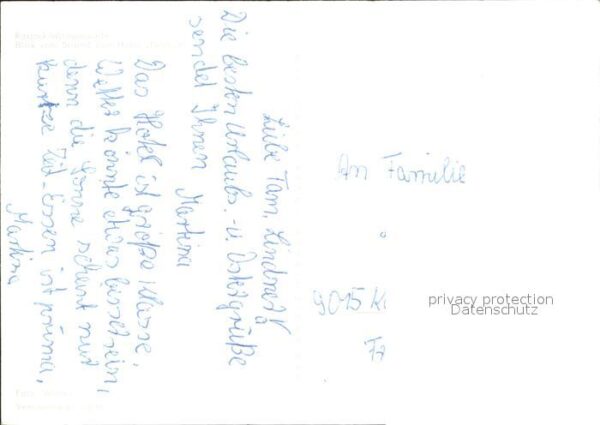 Liebe Fam. Lindner!
Die besten Urlaubs- u. Ostergrüße
sendet Ihnen Martina
Das Hotel ist große Klasse.
Wetter könnte etwas besser sein,
denn die Sonne scheint nur
kurze Zeit - Essen ist prima,
Martina
An Familie
9015 K
privacy protection
Datenschutz